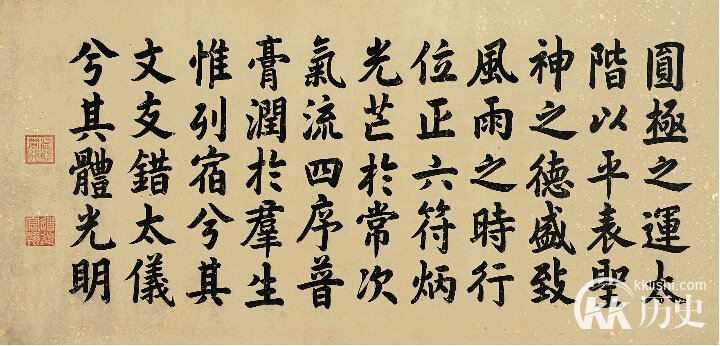 圓極之運太
階以平表聖
神之德盛致
風雨之時行
位正六符炳
光芒於常次
氣流四序普
膏潤於羣生
惟列宿兮其
文交錯太儀
兮其體光明
kklishi.com
KK历史